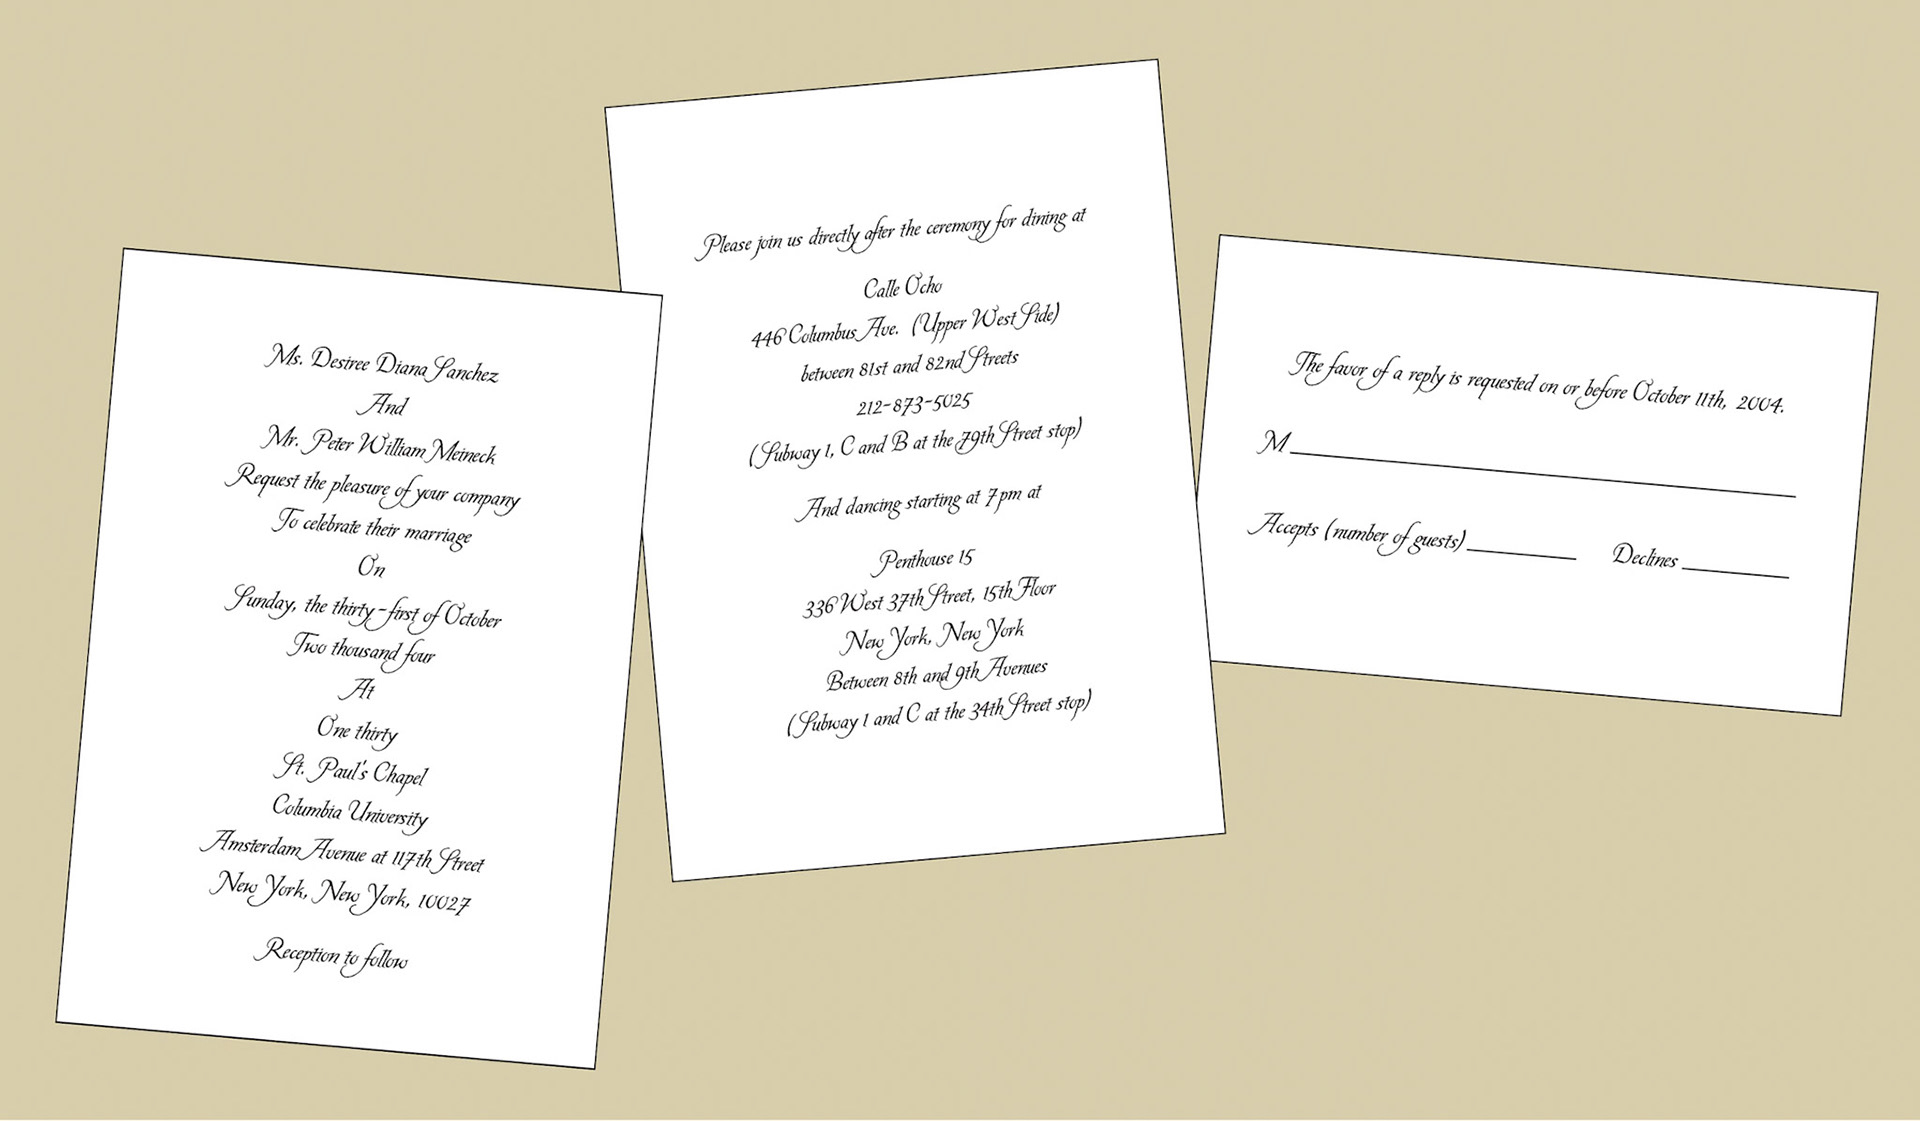 Ms. Desiree Diana Sanchez
And
Mr. Peter William Meineck
Request the pleasure of your company
To celebrate their marriage
On
Sunday, the thirty-first of October
Two thousand four
At
One thirty
St. Paul's Chapel
Columbia University
Amsterdam Avenue at 117th Street
New York, New York, 10027
Reception to follow
Please join us directly after the ceremony for dining at
Calle Ocho
446 Columbus Ave. (Upper West Side)
between 81st and 82nd Streets
212-873-5025
(Subway 1, C and B at the 79th Street stop)
And dancing starting at 7pm at
Penthouse 15
336 West 37th Street, 15th Floor
New York, New York
Between 8th and 9th Avenues
(Subway 1 and C at the 34th Street stop)
The favor of a reply is requested on or before October 11th, 2004.
M
Accepts (number of guests) Declines